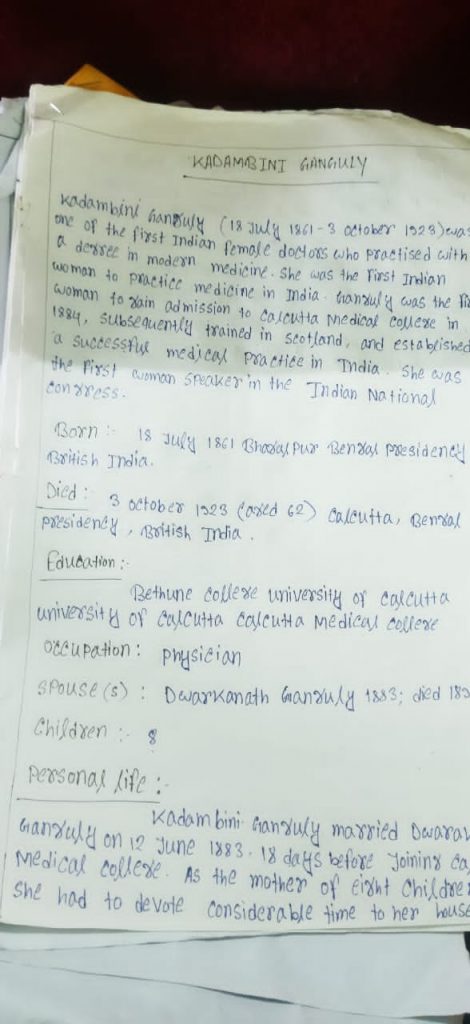 KADAMBINI GANGULY
Kadambini Ganguly (18 July 1861-3 october 1923) was
one of the first Indian female doctors who practised with
a degree in modern medicine. She was the First Indian
woman to practice medicine in India. Ganguly was the fi
woman to gain admission to Calcutta Medical college in
1884, subsequently trained in scotland, and established
a successful medical practice in India. She was
the First woman speaker in the Indian National
congress.
Born :- 18 July 1861 Bhagalpur Bengal presidency
British India.
Died : 3 october 1923 (aged 62) Calcutta, Bengal
presidency, British India.
Education :-
Bethune college university of calcutta
university of calcutta calcutta Medical college
occupation : physician
spouse (s) : Dwarkanath Ganguly 1883; died 189
Children :- 8
personal life :-
Kadambini Ganguly married Dwara
Ganguly on 12 June 1883. 18 days before Joining ca
Medical college. As the mother of eight Childre
she had to devote considerable time to her house